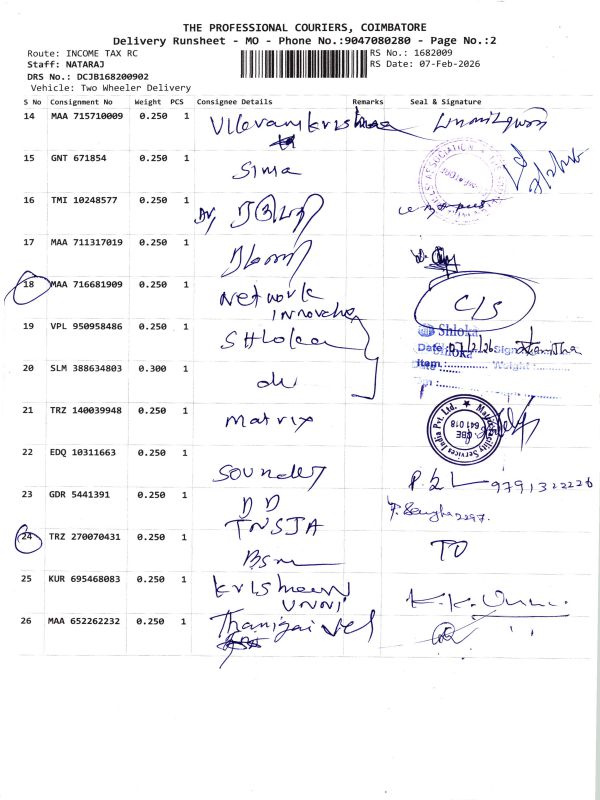 THE PROFESSIONAL COURIERS, COIMBATORE
Delivery Runsheet - MO - Phone No.:9047080280 - Page No.:2
Route: INCOME TAX RC
RS No.: 1682009
Staff: NATARAJ
RS Date: 07-Feb-2026
DRS No.: DCJB168200902
Vehicle: Two Wheeler Delivery
S No Consignment No Weight PCS Consignee Details Remarks Seal & Signature
14 MAA 715710009 0.250 1
15 GNT 671854 0.250 1 Sima
16 TMI 10248577 0.250 1
17 MAA 711317019 0.250 1
18 MAA 716681909 0.250 1 Network C/S
19 VPL 950958486 0.250 1 Shloka
Shloka
Date: 07/2/26 Sign
Item:
Weight:
20 SLM 388634803 0.300 1
21 TRZ 140039948 0.250 1 Matrix
CBE
641 018
22 EDQ 10311663 0.250 1 9791322226
23 GDR 5441391 0.250 1 DD
TNSJA
24 TRZ 270070431 0.250 1 TO
25 KUR 695468083 0.250 1 Krishnan
unni
26 MAA 652262232 0.250 1 Thanigaivel